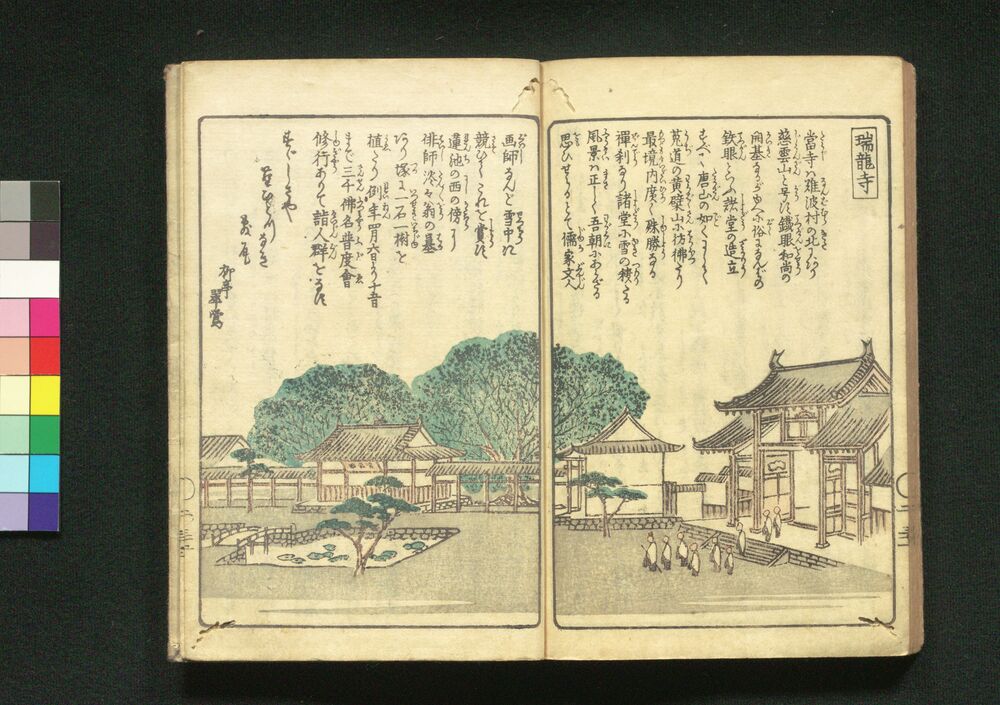 瑞龍寺
當寺ハ難波村の北にあり
慈雲山と号す鐵眼和尚の
開基なり
鉄眼といふ 諸堂の造立
すべて唐山の如くにして
莵道の黄檗山に彷彿たり
最境内廣く殊勝なる
禪刹なり諸堂に雪の積たる
風景ハ正しく吾朝にあらざる
思ひせらるとて儒家文人
画師なんど雪中に
競ひてこれを賞す
蓮池の西の傍に
俳師淡々翁の墓
あり塚に一石一樹を
植たり 例年四月六日より十五日
まで三千佛名普度會
修行ありて諸人群をなす
すゞしさや
柳亭
翠鶯